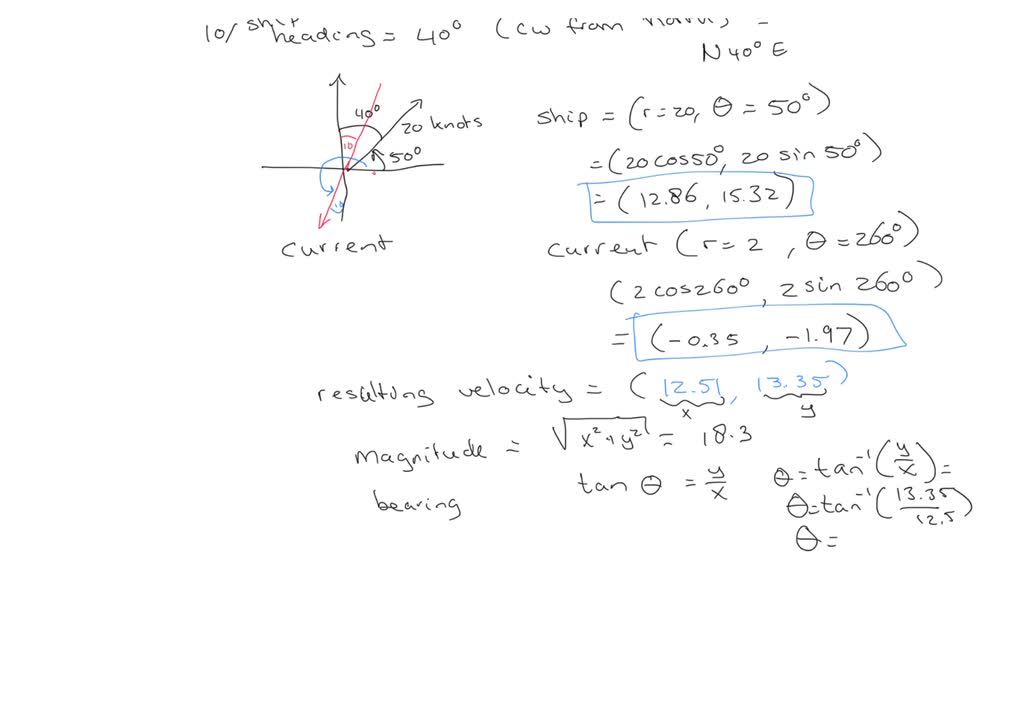 10/ ship heading = 40° (cw from
N40°E
40°
20 knots
10
50°
10
current
ship = (r=20, θ = 50°)
= (20 cos50°, 20 sin 50°)
= (12.86, 15.32)
current (r = 2 , θ = 260°)
(2 cos260°, 2 sin 260°)
= (-0.35 , -1.97)
resulting velocity = (12.51, 13.35)
x y
magnitude = √x²+y² = 18.3
bearing
tan θ = y/x
θ = tan⁻¹(y/x) =
θ = tan⁻¹(13.35/12.5)
θ =